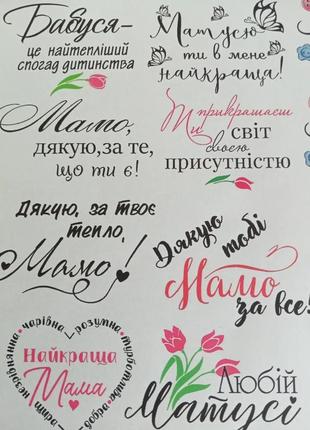 Бабуся-
це найтепліший
спогад дитинства
Матусю
ти в мене
найкраща!
Мамо,
дякую, за те,
що ти є!
Ти прикрашаєш
світ
своєю
присутністю
Дякую, за твоє
тепло,
Мамо!
Дякую тобі
Мамо
за все!
незрівнянна чарівна розумна турботлива
Найкраща
Мама
Любій
Матусі